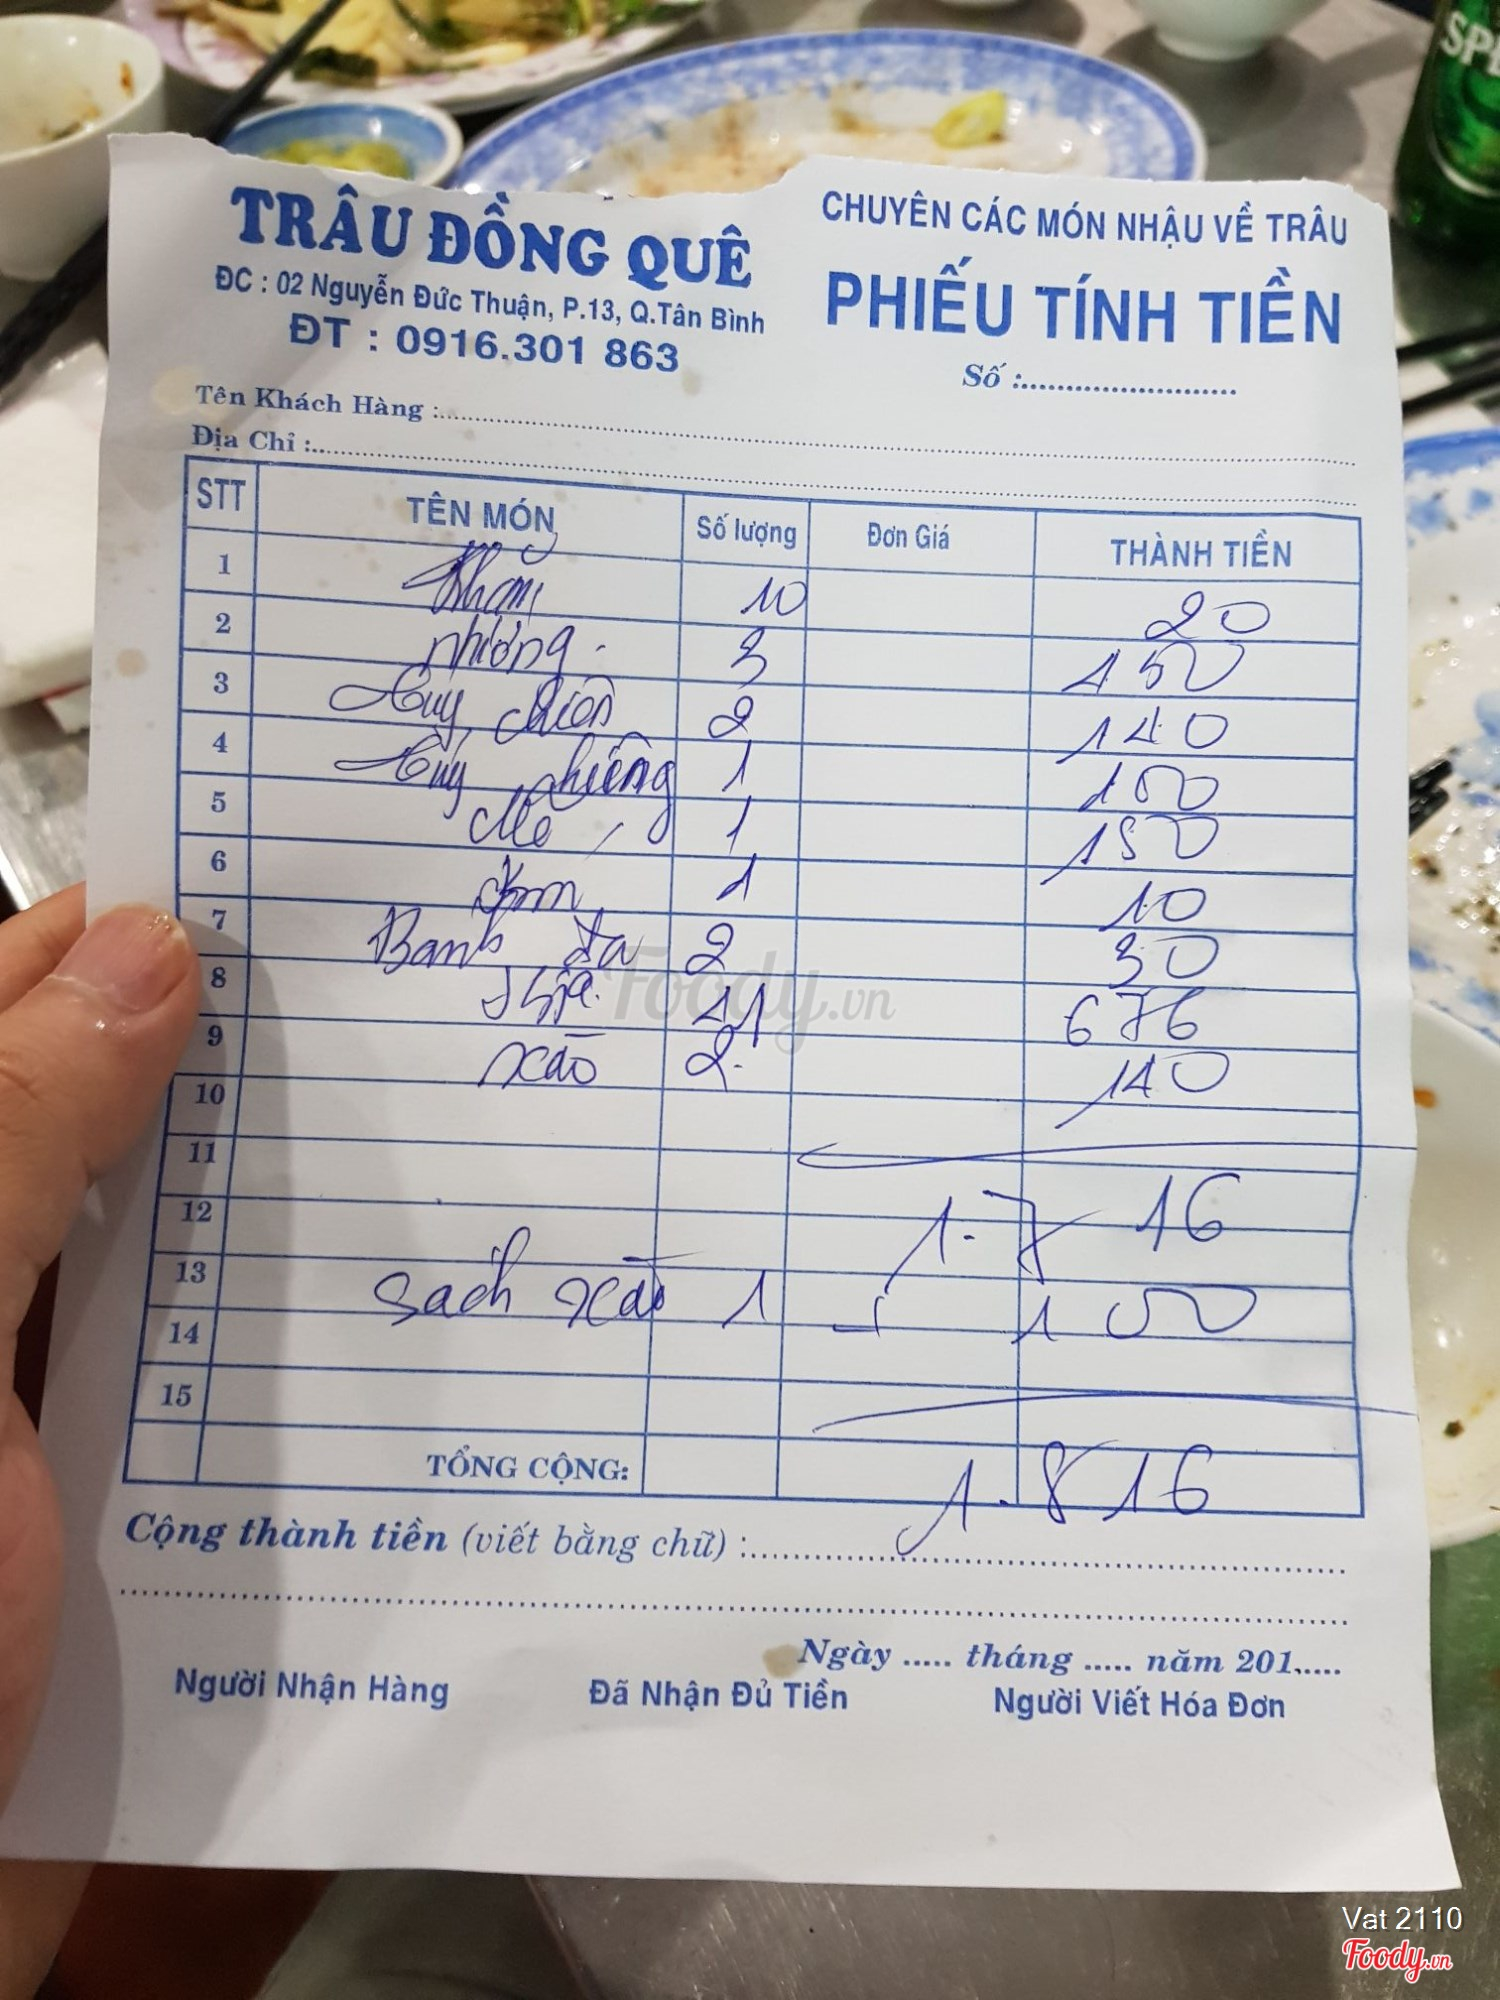 SPE
TRÂU ĐỒNG QUÊ
ĐC : 02 Nguyễn Đức Thuận, P.13, Q.Tân Bình
ĐT : 0916.301 863
CHUYÊN CÁC MÓN NHẬU VỀ TRÂU
PHIẾU TÍNH TIỀN
Số :
Tên Khách Hàng :
Địa Chỉ :
STT TÊN MÓN Số lượng Đơn Giá THÀNH TIỀN
1 Khăn 10 20
2 nướng 3 150
3 2 140
4 1 150
5 1 150
6 1 10
7 Banh đa 2 30
8 11 676
9 xào 2 140
10
11
12 1.7 16
13 Sach xào 1 100
14
15
TỔNG CỘNG: 1.816
Cộng thành tiền (viết bằng chữ) :
Ngày ..... tháng ..... năm 201.....
Người Nhận Hàng Đã Nhận Đủ Tiền Người Viết Hóa Đơn
Foody.vn
Vat 2110
Foody.vn